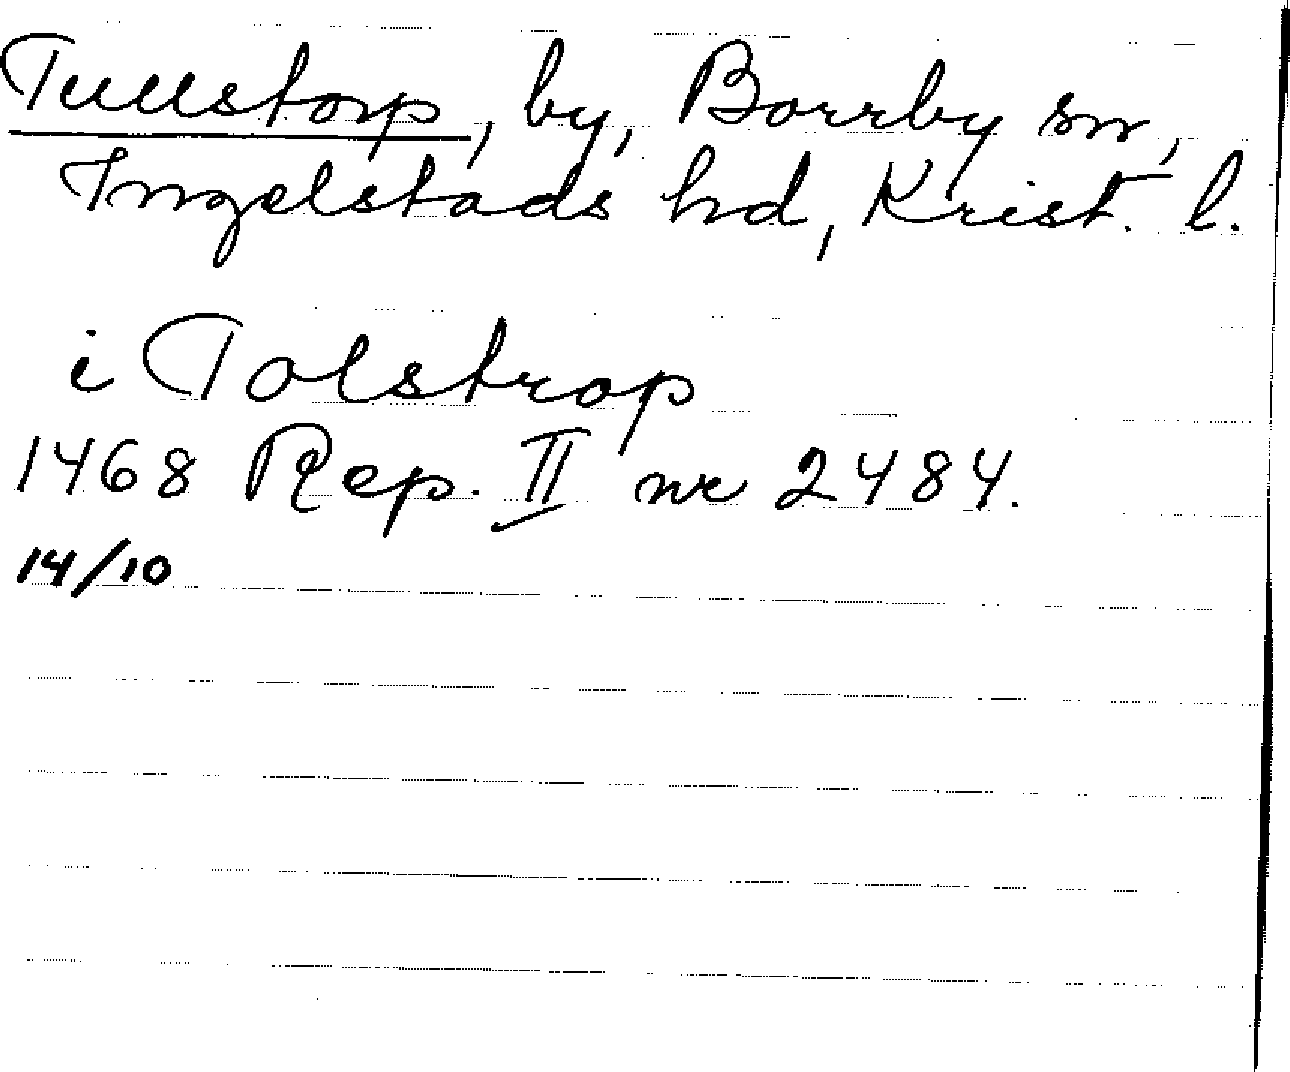 Tullstorp, by, Borrby sn,
Ingelstads hd, Krist. l.
i Tolstrop
1468 Rep. II nr 2484.
14/10